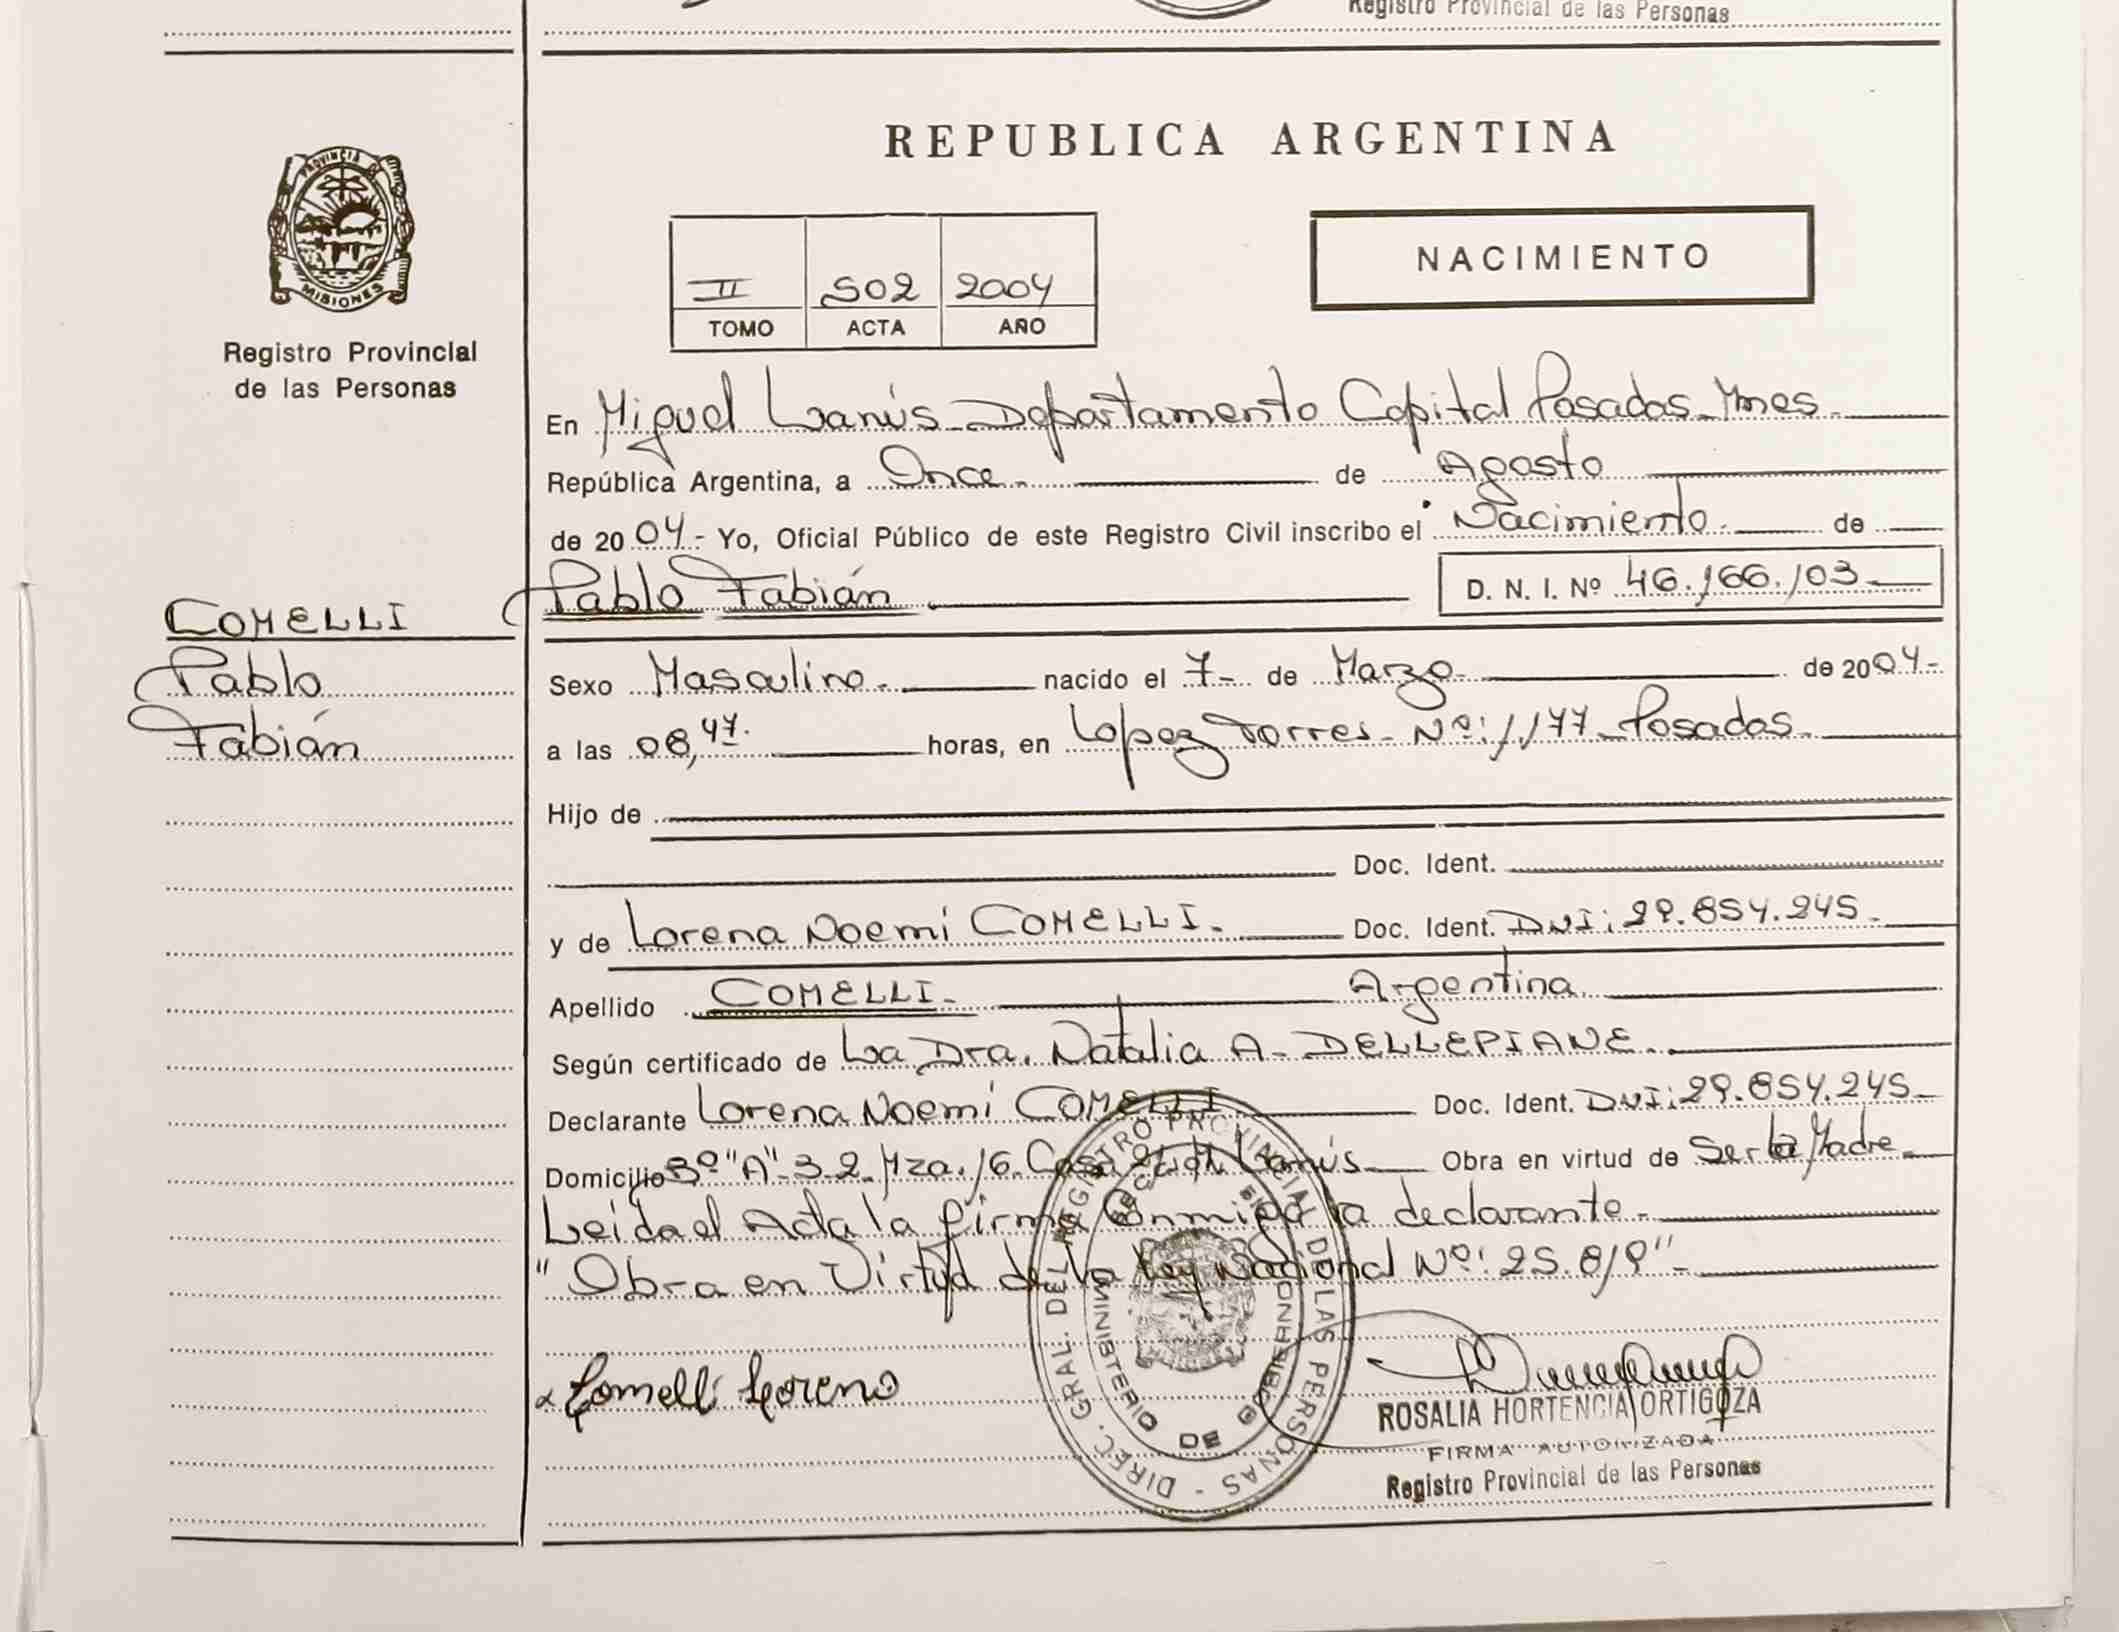 Registro Provincial de las Personas
REPUBLICA ARGENTINA
PROVINCIA DE
MISIONES
Registro Provincial
de las Personas
NACIMIENTO
II 502 2004
TOMO ACTA AÑO
En Miguel Lanús-Departamento Capital Posadas-Mnes.
República Argentina, a Once. de Agosto
de 2004.- Yo, Oficial Público de este Registro Civil inscribo el Nacimiento. de
Pablo Fabián D. N. I. Nº 46.166.103.
COMELLI
Pablo
Fabián
Sexo Masculino. nacido el 7- de Marzo. de 2004.-
a las 08,47. horas, en Lopez Torres- Nº: 1.177- Posadas.
Hijo de
Doc. Ident.
y de Lorena Noemí COMELLI. Doc. Ident. DNI: 29.854.245.
Apellido COMELLI. Argentina
Según certificado de La Dra. Natalia A- DELLEPIANE.
Declarante Lorena Noemí COMELLI Doc. Ident. DNI: 29.854.245.
Domicilio Bº "A" 3-2. Mza. 16. Casa Lanús Obra en virtud de Ser la Madre.
Leida el Acta la firma Conmigo la declarante.
"Obra en Virtud de la Ley Nacional Nº: 25.819"
Comelli Lorena
DIREC. GRAL. DEL REGISTRO PROVINCIAL DE LAS PERSONAS -
MINISTERIO DE GOBIERNO
ROSALIA HORTENCIA ORTIGOZA
FIRMA AUTORIZADA
Registro Provincial de las Personas